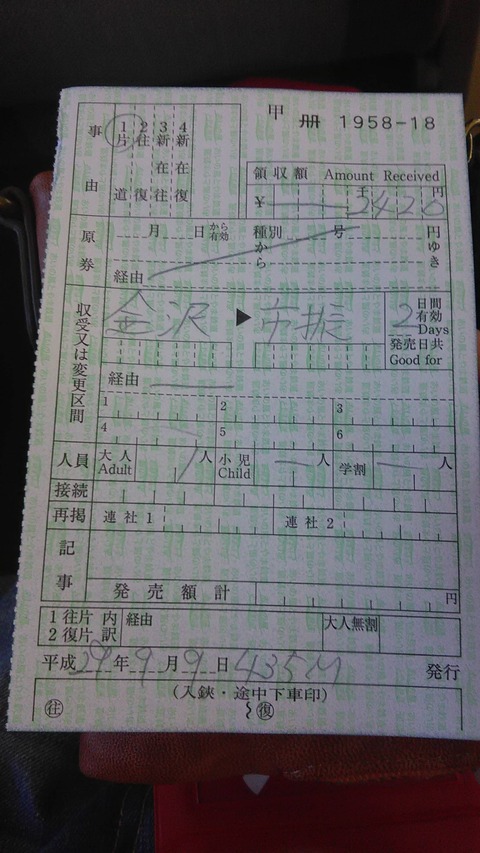 甲 冊 1958-18
事由
1片道
2往復
3新在往
4新在復
領収額 Amount Received
¥ 千 円
2420
原券
月 日から有効 種別 号 円
から ゆき
経由
収受又は変更区間
金沢 ▶ 市振
2 日間有効 Days
発売日共 Good for
経由
1 2 3
4 5 6
人員 大人 Adult 1人 小児 Child 人 学割 人
接続
再掲 連社1 連社2
記事
発売額計 円
1往片 内 経由 大人無割
2復片 訳
平成29年9月9日 435M 発行
(入鋏・途中下車印)
往 復